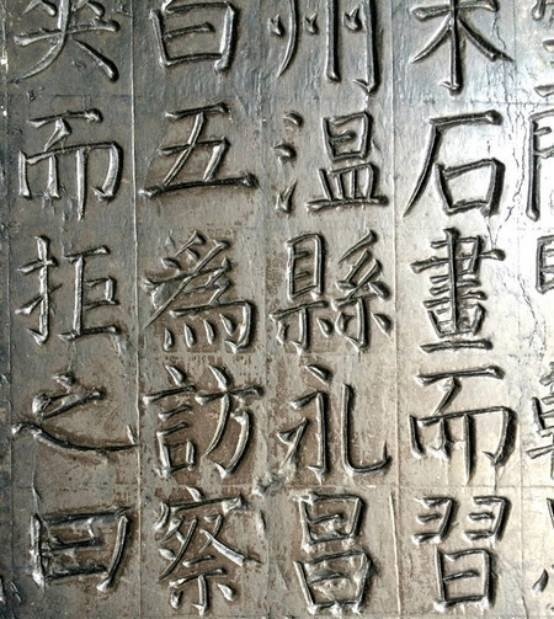 木石畫而習
州温縣永昌
五為訪察
而拒之曰